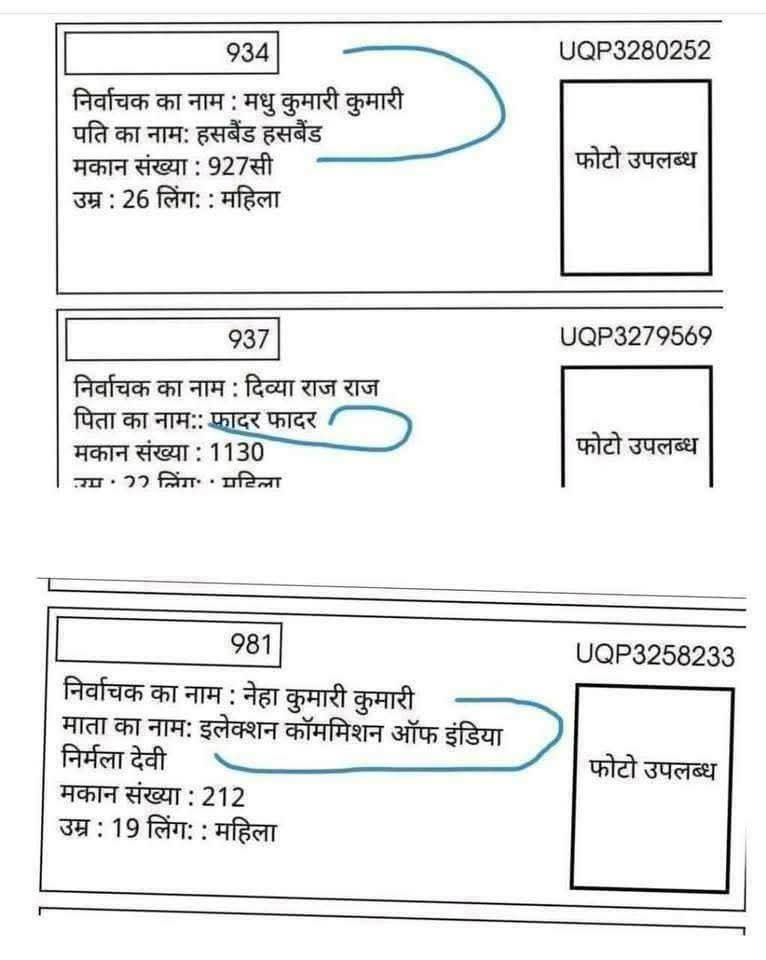 934
UQP3280252
निर्वाचक का नाम : मधु कुमारी कुमारी
पति का नाम: हसबैंड हसबैंड
मकान संख्या : 927सी
उम्र : 26 लिंग: : महिला
फोटो उपलब्ध
937
UQP3279569
निर्वाचक का नाम : दिव्या राज राज
पिता का नाम:: फादर फादर
मकान संख्या : 1130
उम्र : 22 लिंग: : महिला
फोटो उपलब्ध
981
UQP3258233
निर्वाचक का नाम : नेहा कुमारी कुमारी
माता का नाम: इलेक्शन कॉममिशन ऑफ इंडिया
निर्मला देवी
मकान संख्या : 212
उम्र : 19 लिंग: : महिला
फोटो उपलब्ध